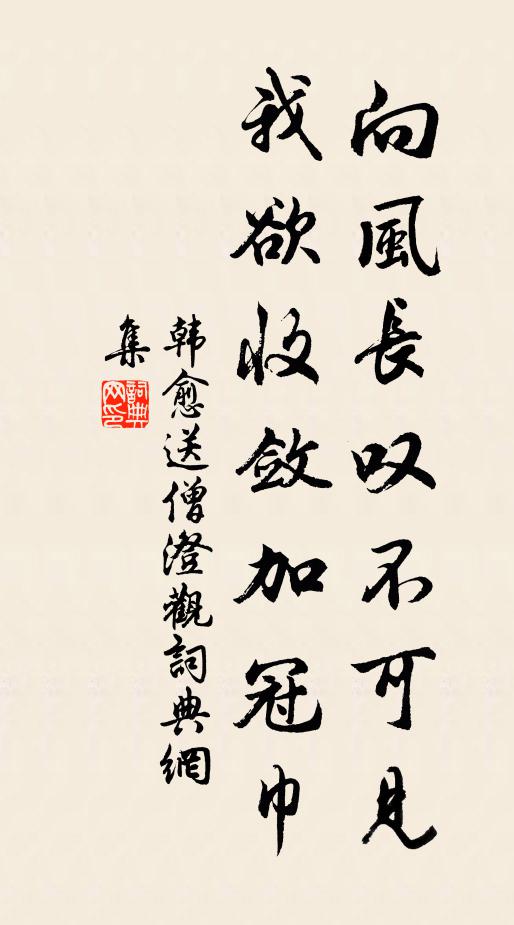 向風長叹不可見
我欲收斂加冠巾
韩愈送僧澄觀詞典網
集
詞典
网印